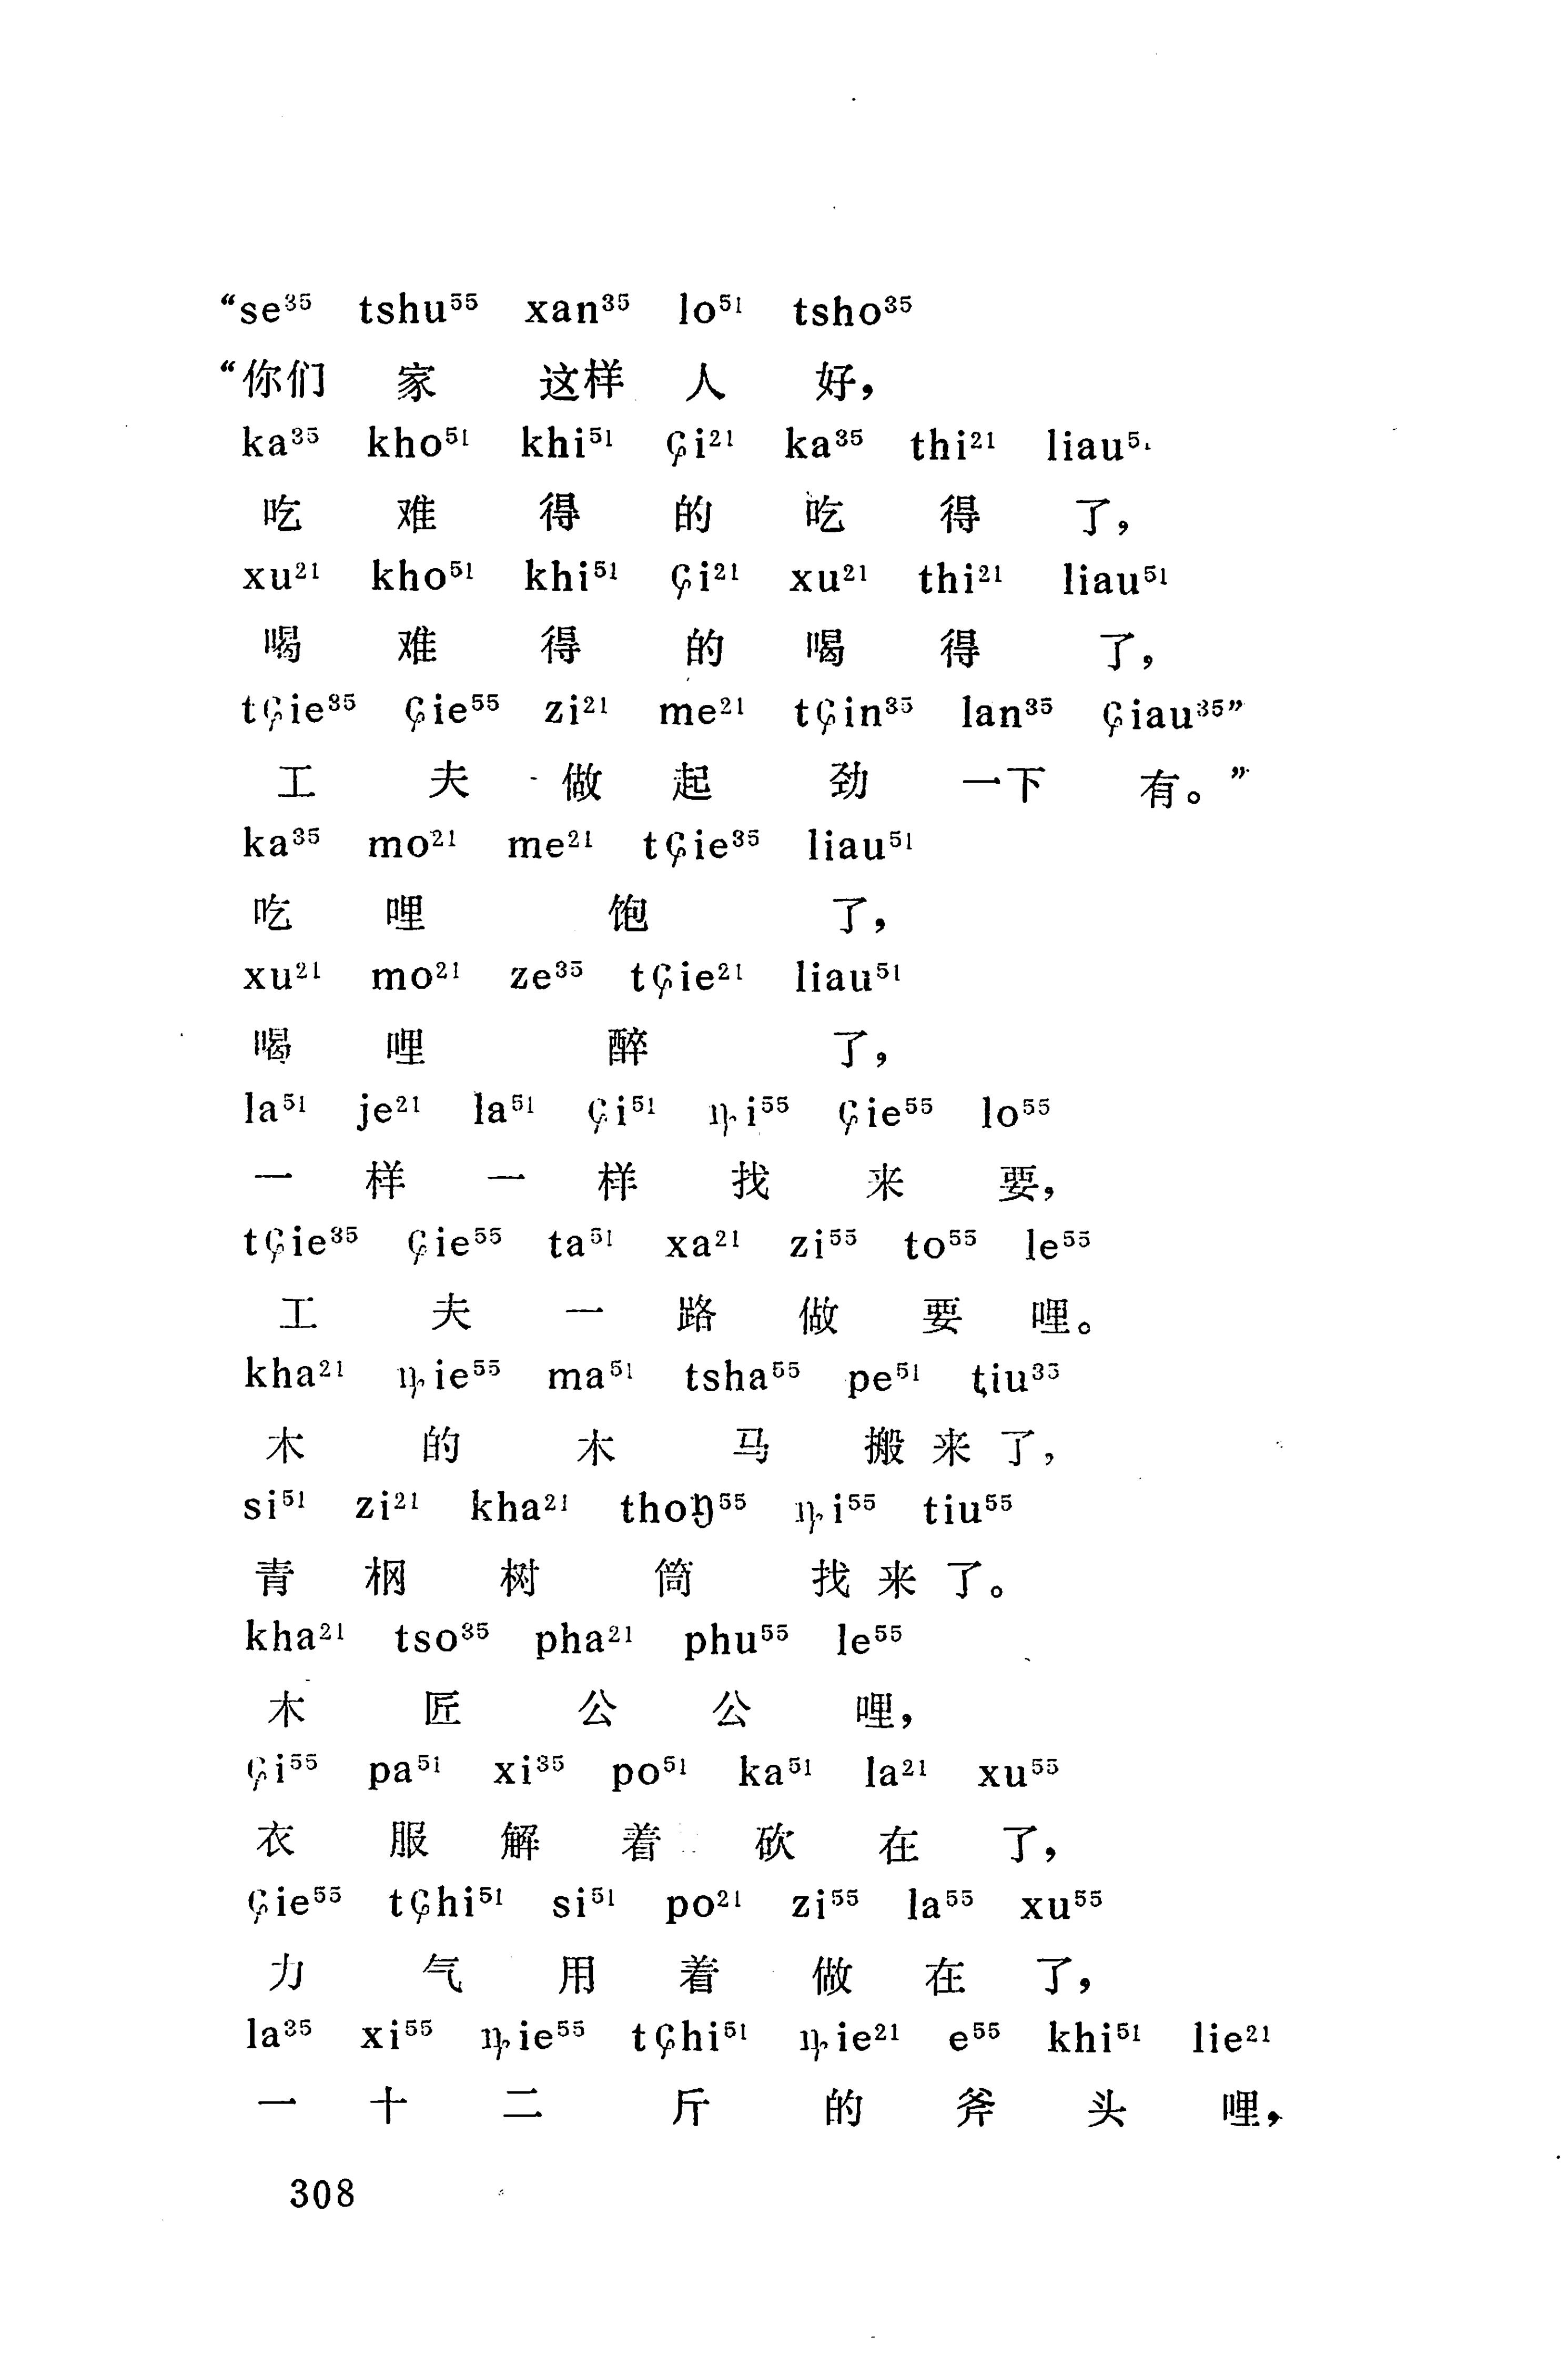 “se³⁵ tshu⁵⁵ xan³⁵ lo⁵¹ tsho³⁵
“你们 家 这样 人 好，
ka³⁵ kho⁵¹ khi⁵¹ ɕi²¹ ka³⁵ thi²¹ liau⁵¹
吃 难 得 的 吃 得 了，
xu²¹ kho⁵¹ khi⁵¹ ɕi²¹ xu²¹ thi²¹ liau⁵¹
喝 难 得 的 喝 得 了，
tɕie³⁵ ɕie⁵⁵ zi²¹ me²¹ tɕin³⁵ lan³⁵ ɕiau³⁵”
工 夫 做 起 劲 一下 有。”
ka³⁵ mo²¹ me²¹ tɕie³⁵ liau⁵¹
吃 哩 饱 了，
xu²¹ mo²¹ ze³⁵ tɕie²¹ liau⁵¹
喝 哩 醉 了，
la⁵¹ je²¹ la⁵¹ ɕi⁵¹ ȵi⁵⁵ ɕie⁵⁵ lo⁵⁵
一 样 一 样 找 来 要，
tɕie³⁵ ɕie⁵⁵ ta⁵¹ xa²¹ zi⁵⁵ to⁵⁵ le⁵⁵
工 夫 一 路 做 要 哩。
kha²¹ ȵie⁵⁵ ma⁵¹ tsha⁵⁵ pe⁵¹ tiu³⁵
木 的 木 马 搬 来 了，
si⁵¹ zi²¹ kha²¹ thoŋ⁵⁵ ȵi⁵⁵ tiu⁵⁵
青 㭎 树 筒 找 来 了。
kha²¹ tso³⁵ pha²¹ phu⁵⁵ le⁵⁵
木 匠 公 公 哩，
ɕi⁵⁵ pa⁵¹ xi³⁵ po⁵¹ ka⁵¹ la²¹ xu⁵⁵
衣 服 解 着 砍 在 了，
ɕie⁵⁵ tɕhi⁵¹ si⁵¹ po²¹ zi⁵⁵ la⁵⁵ xu⁵⁵
力 气 用 着 做 在 了，
la³⁵ xi⁵⁵ ȵie⁵⁵ tɕhi⁵¹ ȵie²¹ e⁵⁵ khi⁵¹ lie²¹
一 十 二 斤 的 斧 头 哩，
308